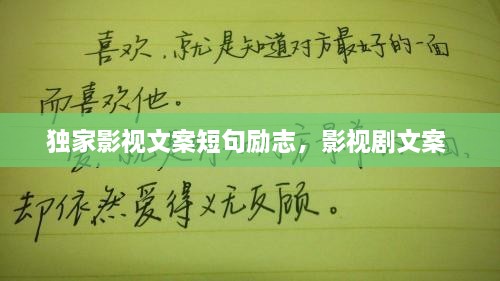 喜欢,就是知道对方最好的一面
而喜欢他。
独家影视文案短句励志，影视剧文案
却依然爱得义无反顾。